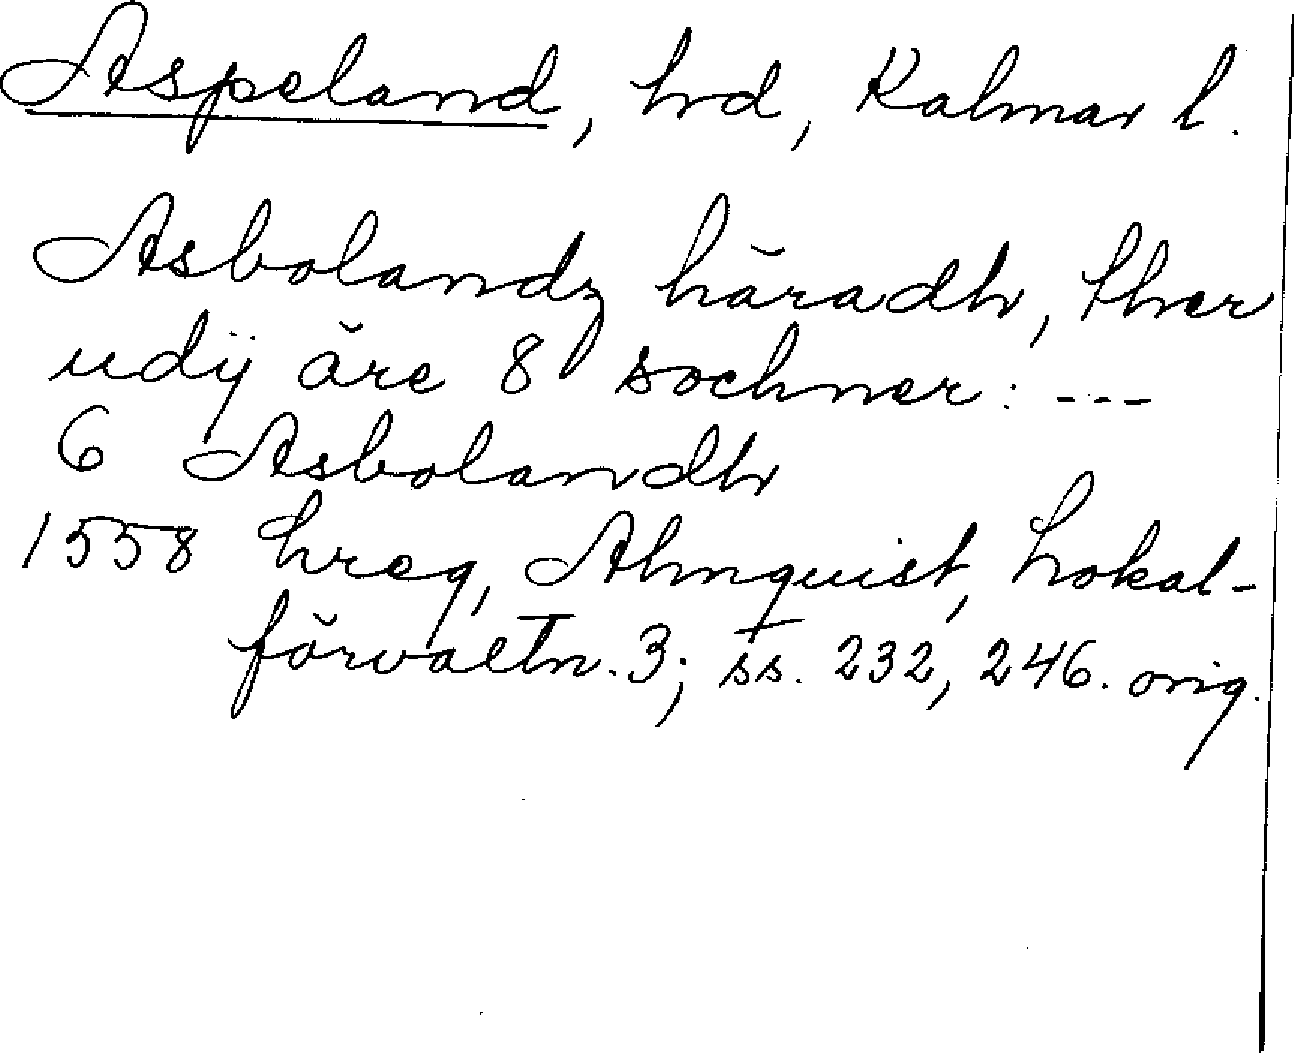 Aspeland, hd, Kalmar l.
Asbolandz häradh, ther
udij äre 8 sochner: ---
6 Asbolandh
1558 hreg, Almquist, Lokal-
förvaltn. 3; ss. 232, 246. orig.